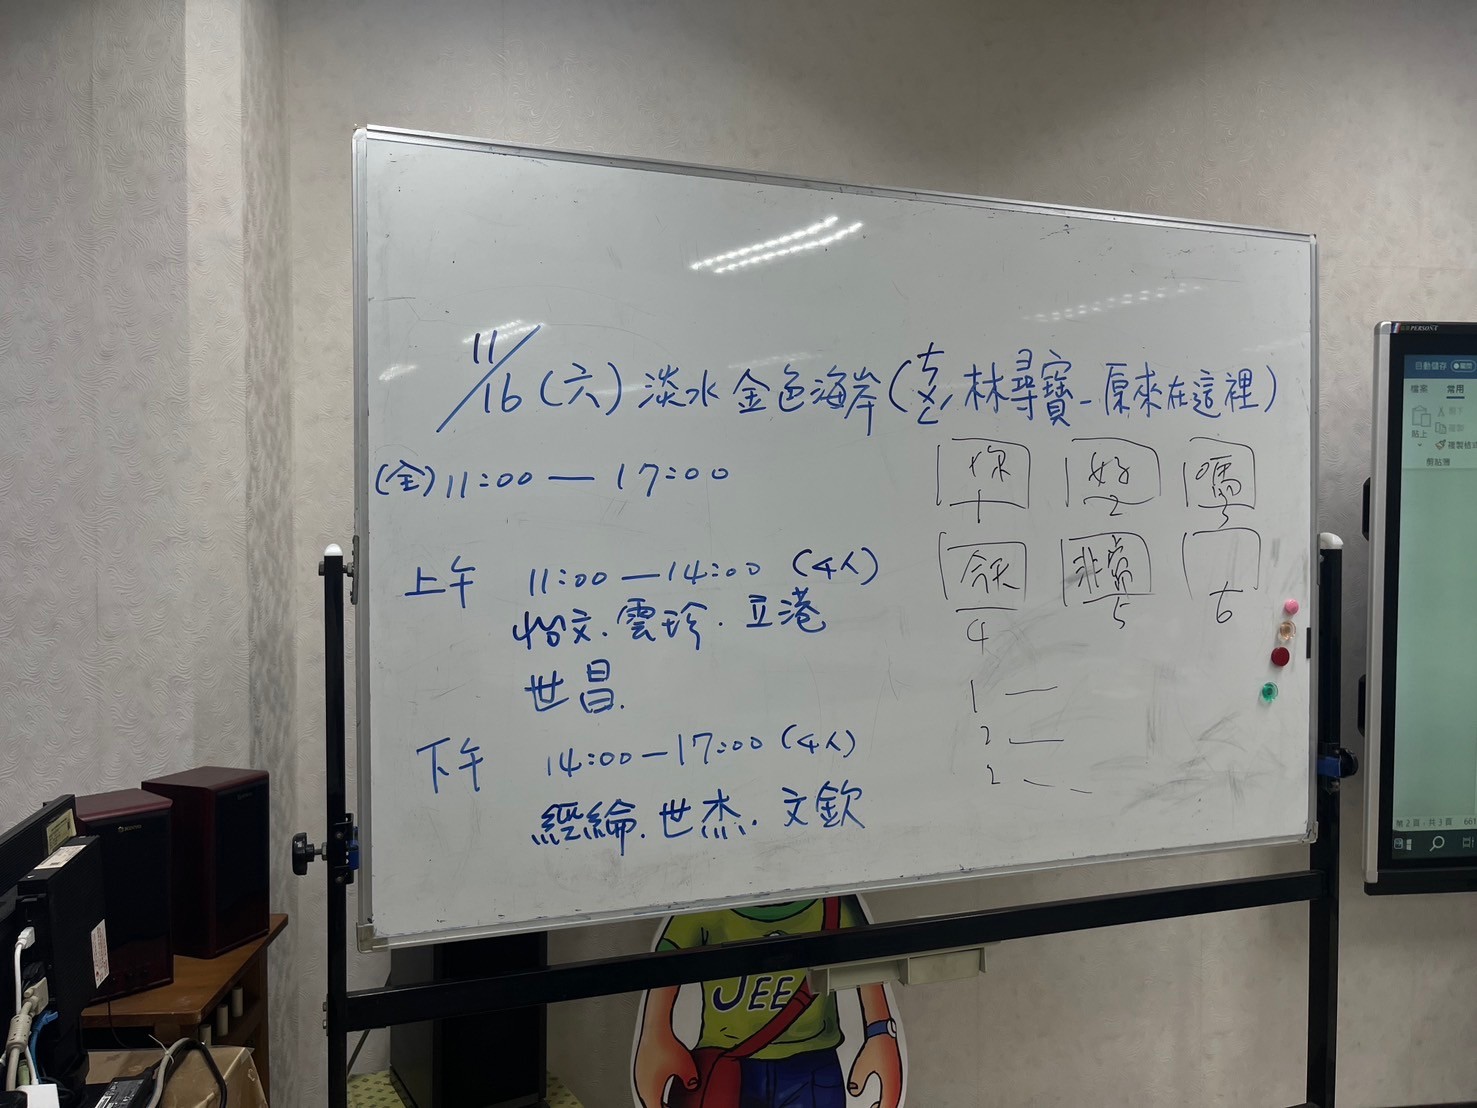 11/16(六)淡水金色海岸(ㄘㄨㄥˊ林尋寶-原來在這裡)
(全)11:00—17:00
上午 11:00—14:00 (4人)
怡文.雲珍.立港
世昌.
下午 14:00—17:00 (4人)
經綸.世杰.文欽
你 好 嗎
1 2 3
今天 非常
4 5 6
1 —
2 —
2 —
JEE
自動儲存 關閉
檔案 常用
貼上
複製格式
剪貼簿
第 2 頁，共 3 頁